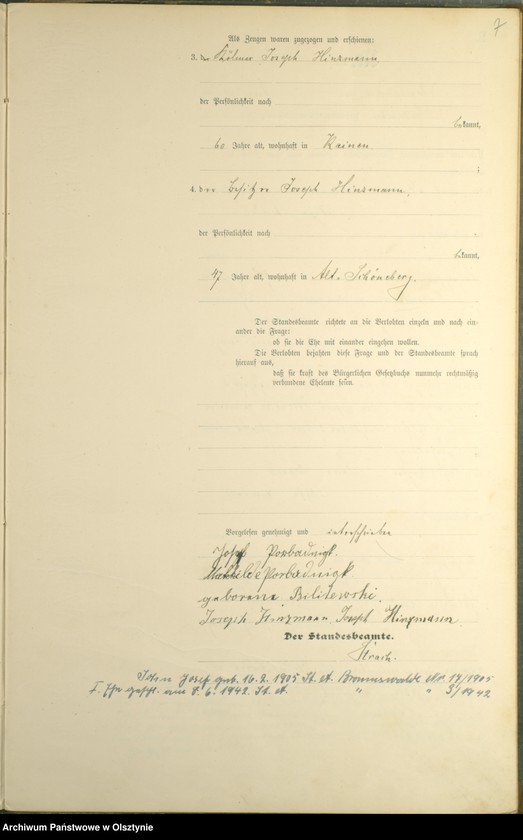 7
Als Zeugen waren zugezogen und erschienen:
3. der Kölmer Joseph Hinzmann
der Persönlichkeit nach
bekannt,
60 Jahre alt, wohnhaft in Rainen
;
4. der Besitzer Joseph Hinzmann,
der Persönlichkeit nach
bekannt,
47 Jahre alt, wohnhaft in Alt-Schöneberg.
Der Standesbeamte richtete an die Verlobten einzeln und nach ein-
ander die Frage:
ob sie die Ehe mit einander eingehen wollen.
Die Verlobten bejahten diese Frage und der Standesbeamte sprach
hierauf aus,
daß sie kraft des Bürgerlichen Gesetzbuchs nunmehr rechtmäßig
verbundene Eheleute seien.
Vorgelesen, genehmigt und unterschrieben
Josef Posbadnigk.
Mathilde Porbadnigk
geborene Bilitewski.
Joseph Hinzmann Joseph Hinzmann
Der Standesbeamte.
Strach.
Sohn Josef geb. 16.2.1905 St. A. Braunswalde Nr. 19/1905
I. Ehe geschl. am 8.6.1942 St. A. " " 3/1942
Archiwum Państwowe w Olsztynie